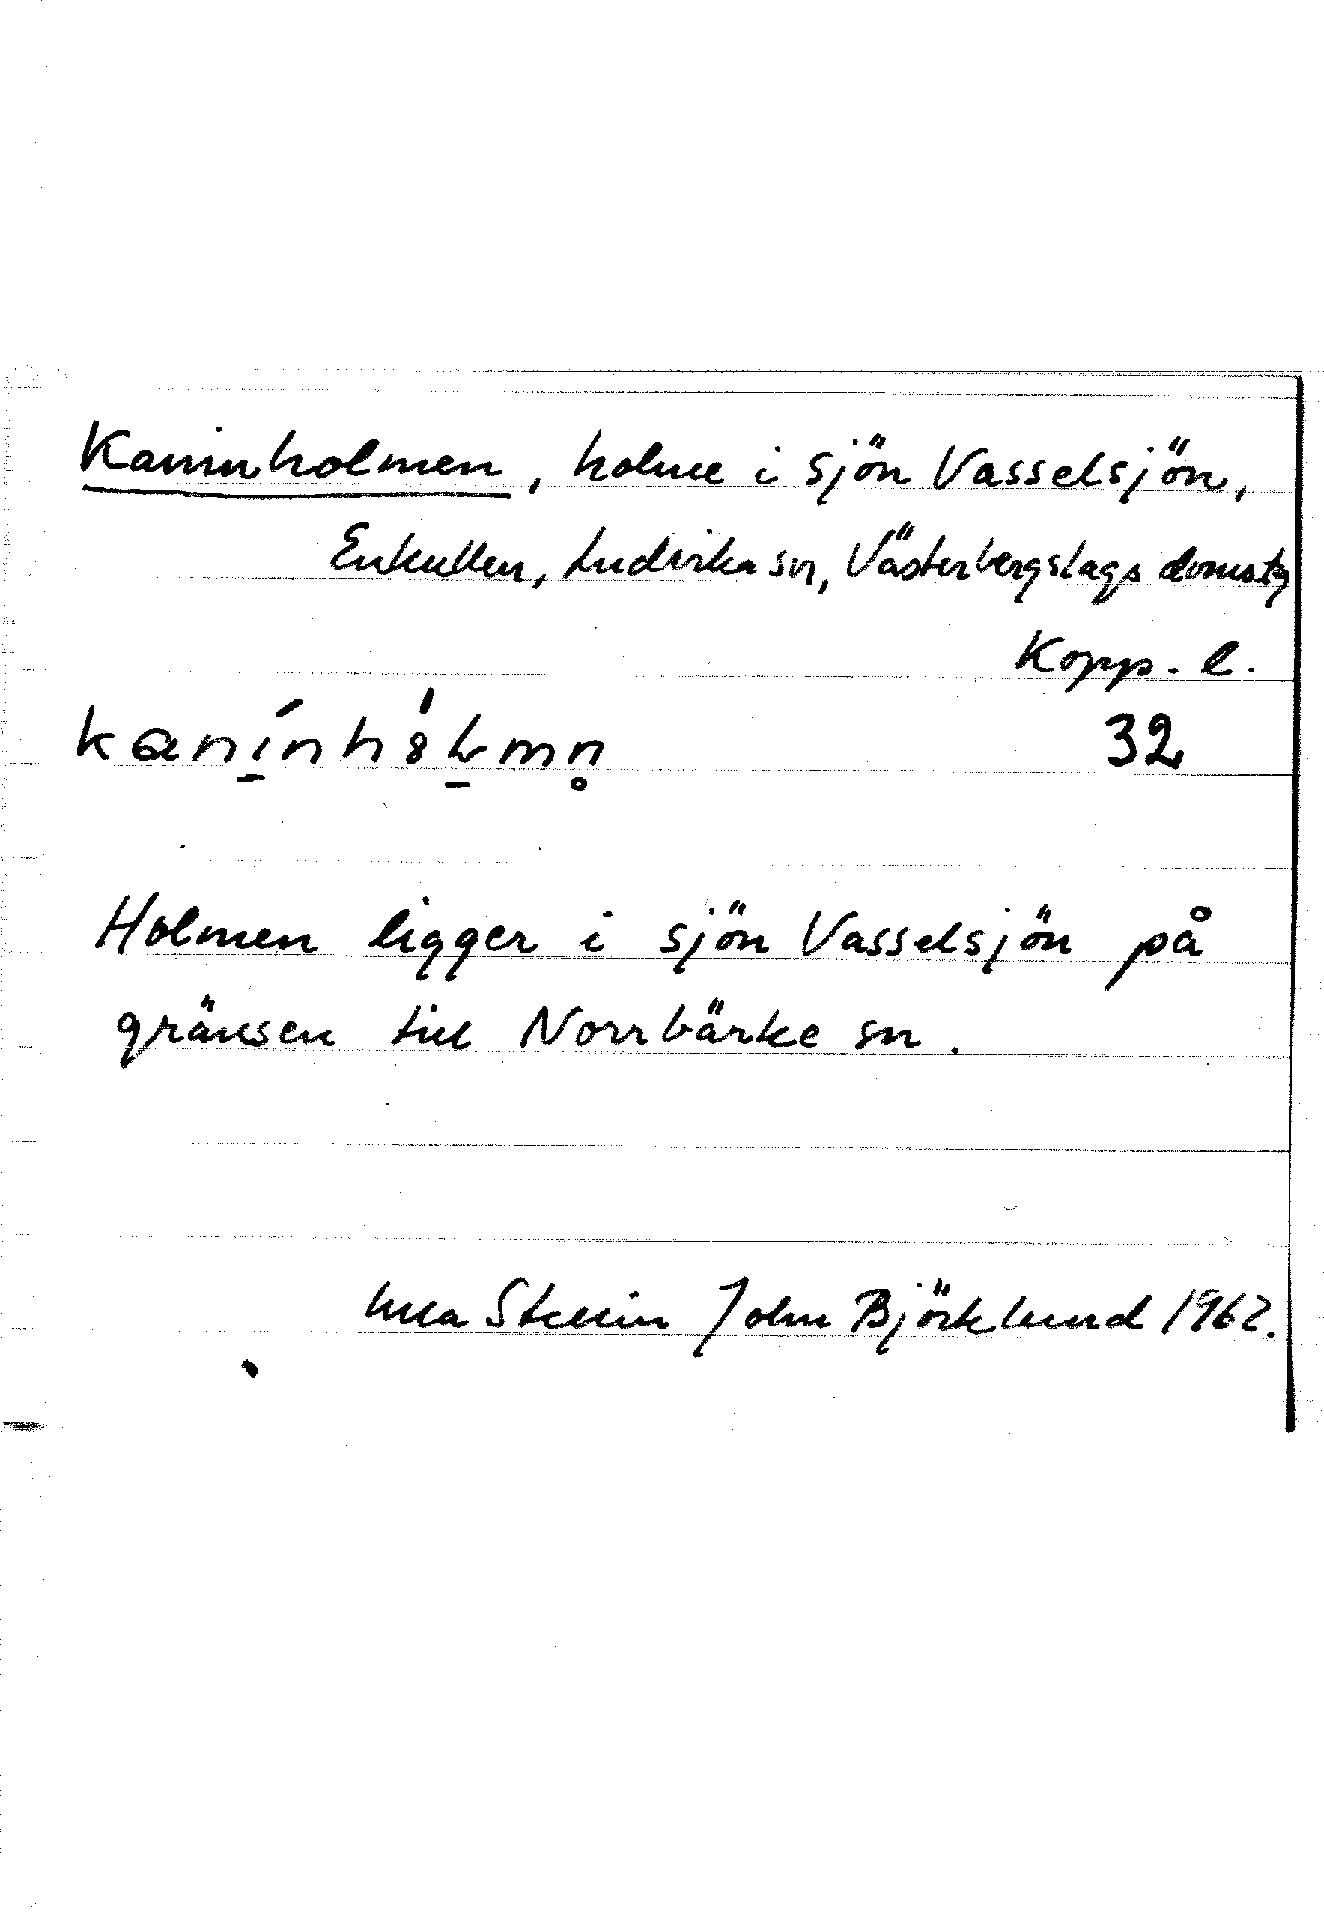 Kaninholmen, holme i sjön Vasselsjön,
Enkullen, Ludvika sn, Västerbergslags domsg
Kopp. l.
32
Holmen ligger i sjön Vasselsjön på
gränsen till Norrbärke sn.
John Björklund 1962.